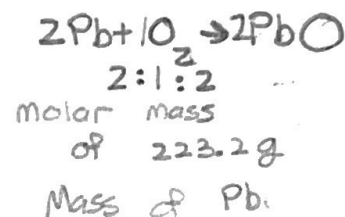 2Pb+1O₂→2PbO
2:1:2
molar mass
of 223.2g
Mass of Pb.